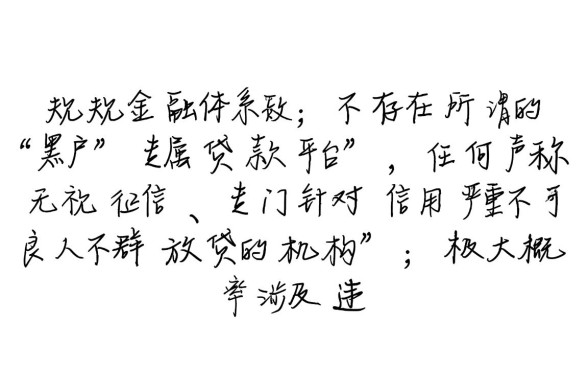 规规金融体系致；不存在所谓的
“黑户”专属贷款平台”，任何声称
无视征信、专门针对信用严重不可
良人不群放贷的机构”；极大概
率涉及违